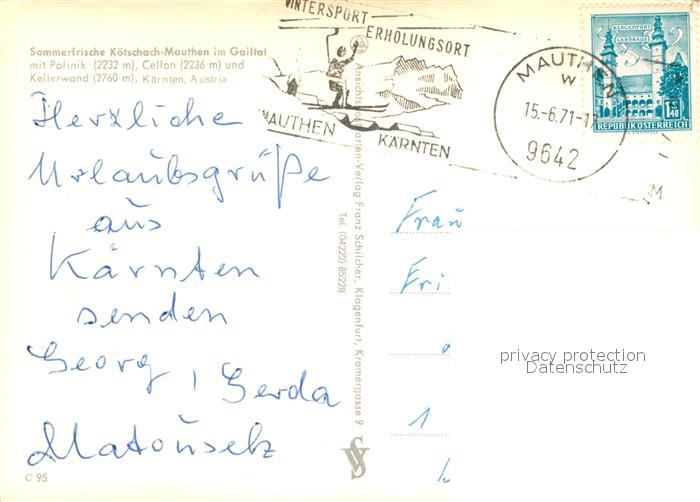 Sommerfrische Kötschach-Mauthen im Gailtal
mit Polinik (2232 m), Cellon (2236 m) und
Kellerwand (2760 m), Kärnten, Austria
Herzliche
Urlaubsgrüße
aus
Kärnten
senden
Georg, Gerda
C 95
WINTERSPORT
ERHOLUNGSORT
MAUTHEN
KÄRNTEN
MAUTHEN
W
15.-6.71-17
9642
KLAGENFURT
LANDHAUS
1.40
REPUBLIK ÖSTERREICH
Ansichtskarten-Verlag Franz Schilcher, Klagenfurt, Kramergasse 9
Tel. (04222) 85228
Frau
Fri
1
privacy protection
Datenschutz